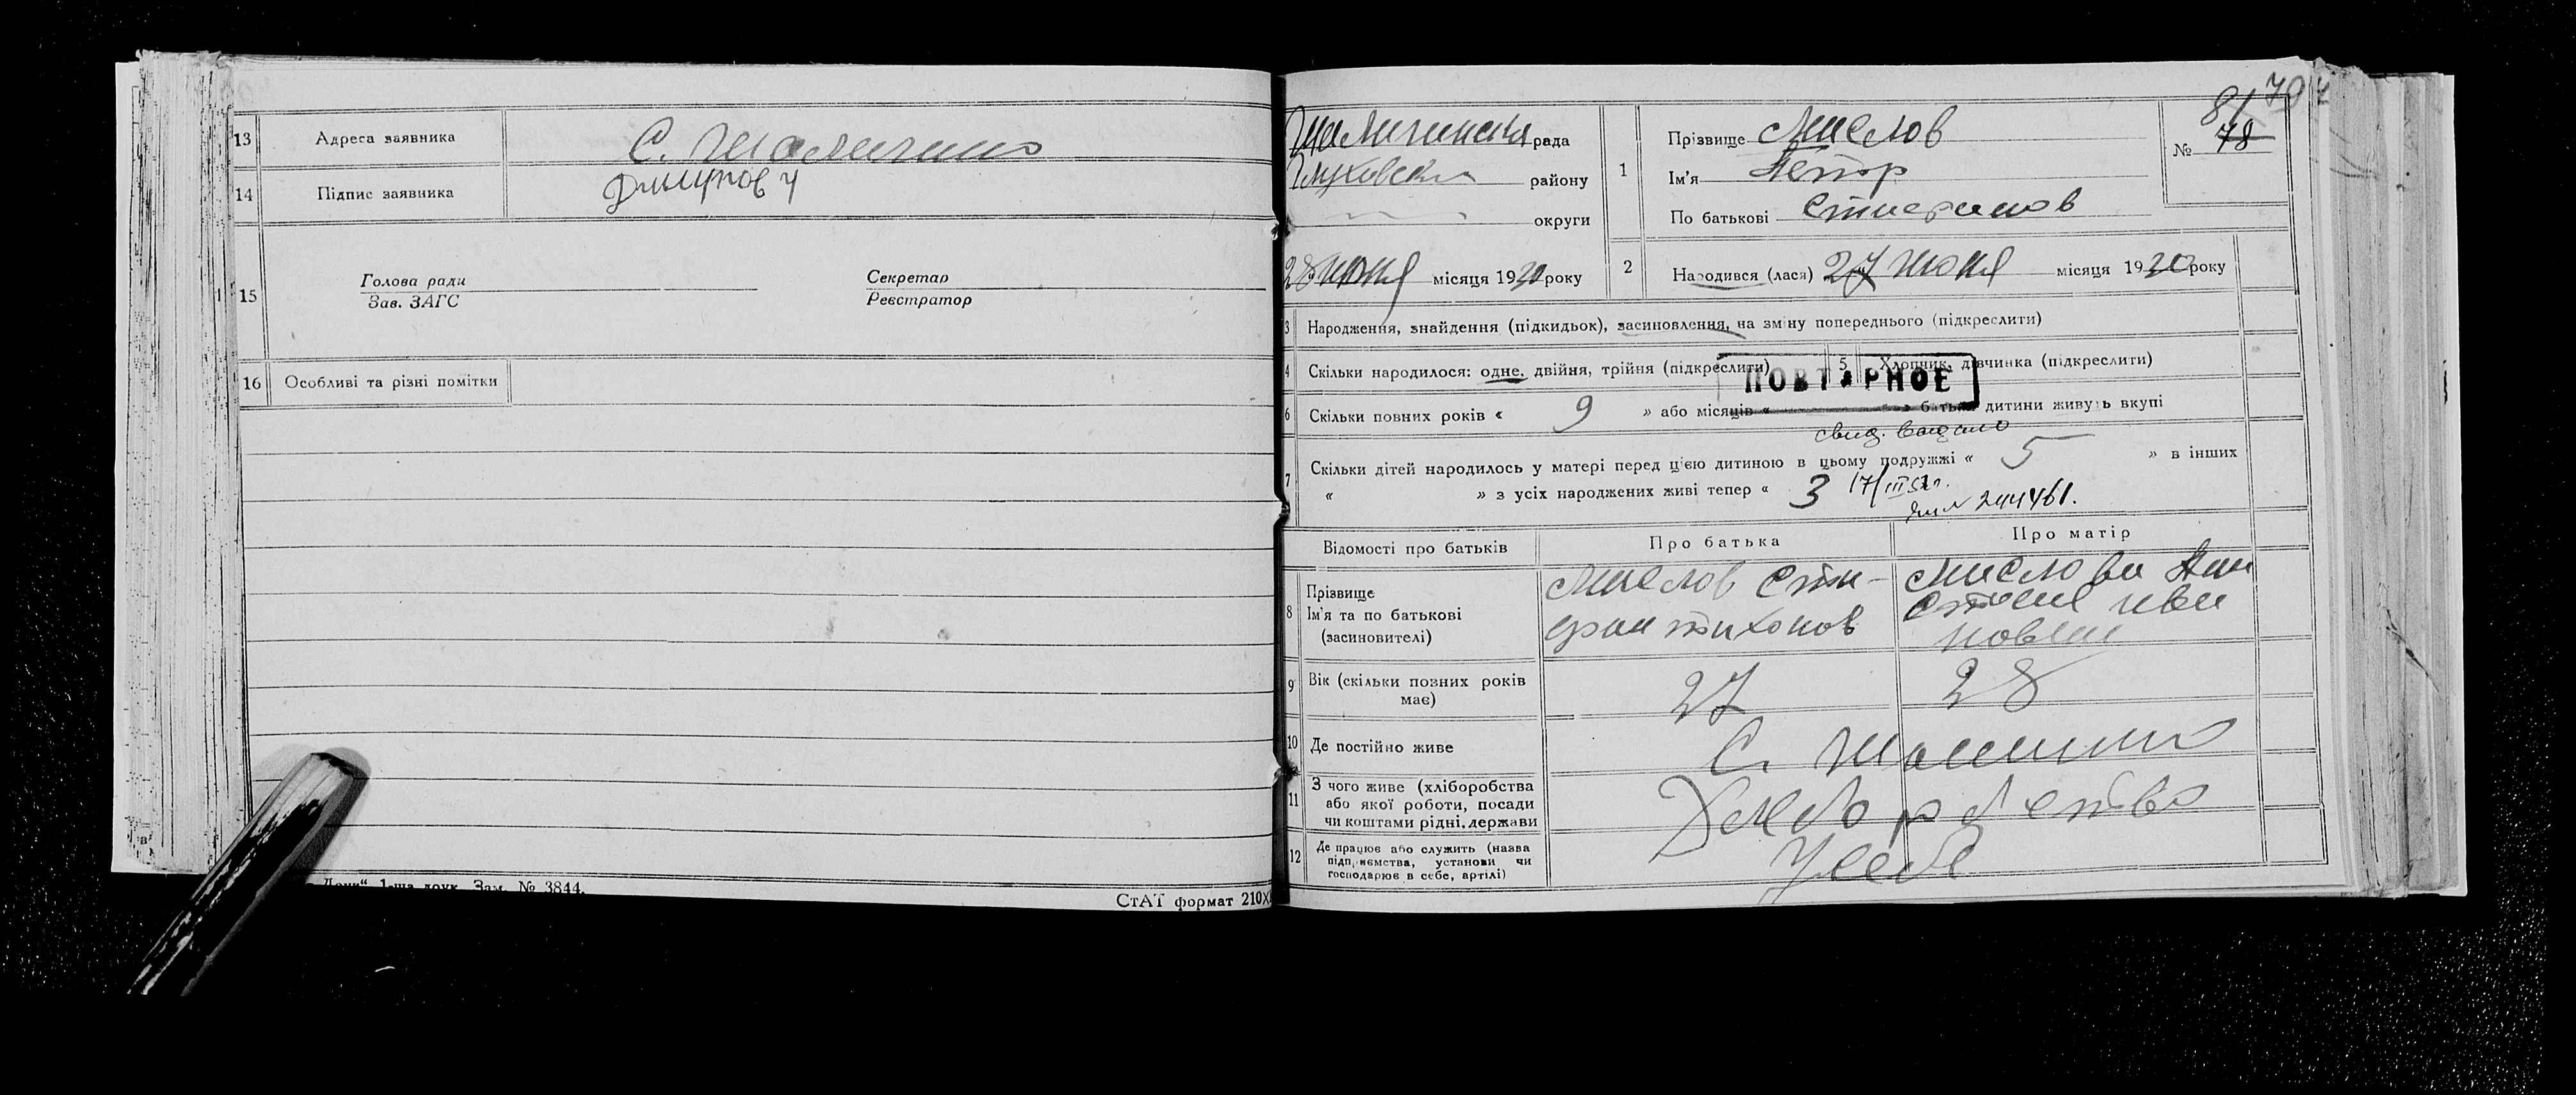 13 Адреса заявника С. Шаличино
14 Підпис заявника
15 Голова ради
Зав. ЗАГС
Секретар
Реєстратор
16 Особливі та різні помітки
1-ша друк. Зам. № 3844.
СтАТ формат 210Х
Шаличинська рада
Глуховски району
округи
28 июня місяця 1930 року
1 Прізвище Мислов
Ім'я Петор
По батькові
№ 78
81
2 Народився (лася) 27 июня місяця 1930 року
3 Народження, знайдення (підкидьок), засиновлення, на зміну попереднього (підкреслити)
4 Скільки народилося: одне, двійня, трійня (підкреслити) 5 Хлопчик, дівчинка (підкреслити)
ПОВТОРНОЕ
6 Скільки повних років « 9 » або місяців « » батьки дитини живуть вкупі
свид. выдано
7 Скільки дітей народилось у матері перед цією дитиною в цьому подружжі « 5 » в інших
« » з усіх народжених живі тепер « 3 17/III
№ 244461.
Відомості про батьків Про батька Про матір
8 Прізвище
Ім'я та по батькові
(засиновителі)
Мислов Сти-
фан тихонов
Мислова Ана
стасия ива
новна
9 Вік (скільки повних років має) 27 28
10 Де постійно живе С.
11 З чого живе (хліборобства
або якої роботи, посади
чи коштами рідні, держави
12 Де працює або служить (назва
підприємства, установи чи
господарює в себе, артілі)
У себе